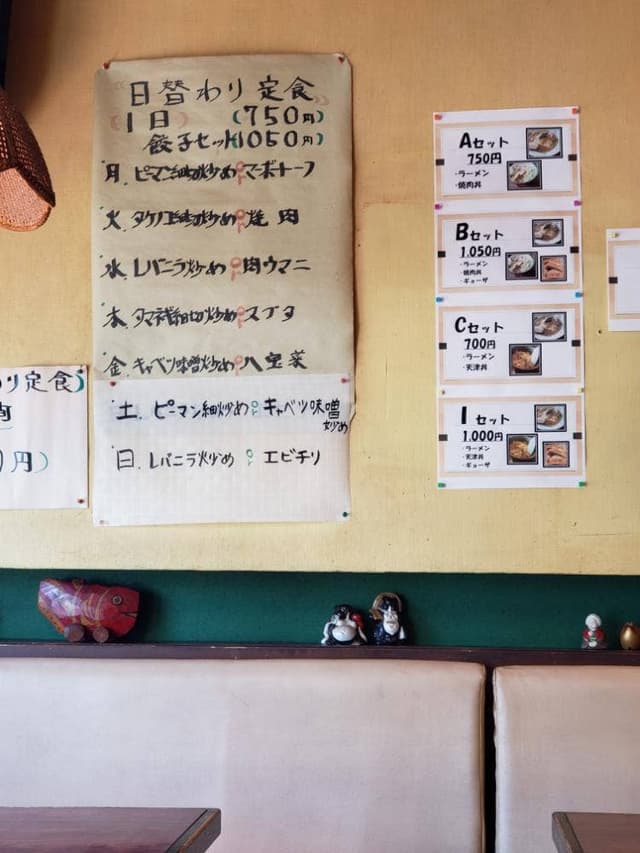 日替わり定食
1日 (750円)
餃子セット1050円)
月. ピーマン細切炒め or マーボトーフ
火. タケノコ細切炒め or 焼肉
水. レバニラ炒め or 肉ウマニ
木. タマネギ細切炒め or スブタ
金. キャベツ味噌炒め or 八宝菜
土. ピーマン細炒め or キャベツ味噌
炒め
日. レバニラ炒め or エビチリ
り定食)
円)
Aセット
750円
・ラーメン
・焼肉丼
Bセット
1,050円
・ラーメン
・焼肉丼
・ギョーザ
Cセット
700円
・ラーメン
・天津丼
Iセット
1,000円
・ラーメン
・天津丼
・ギョーザ